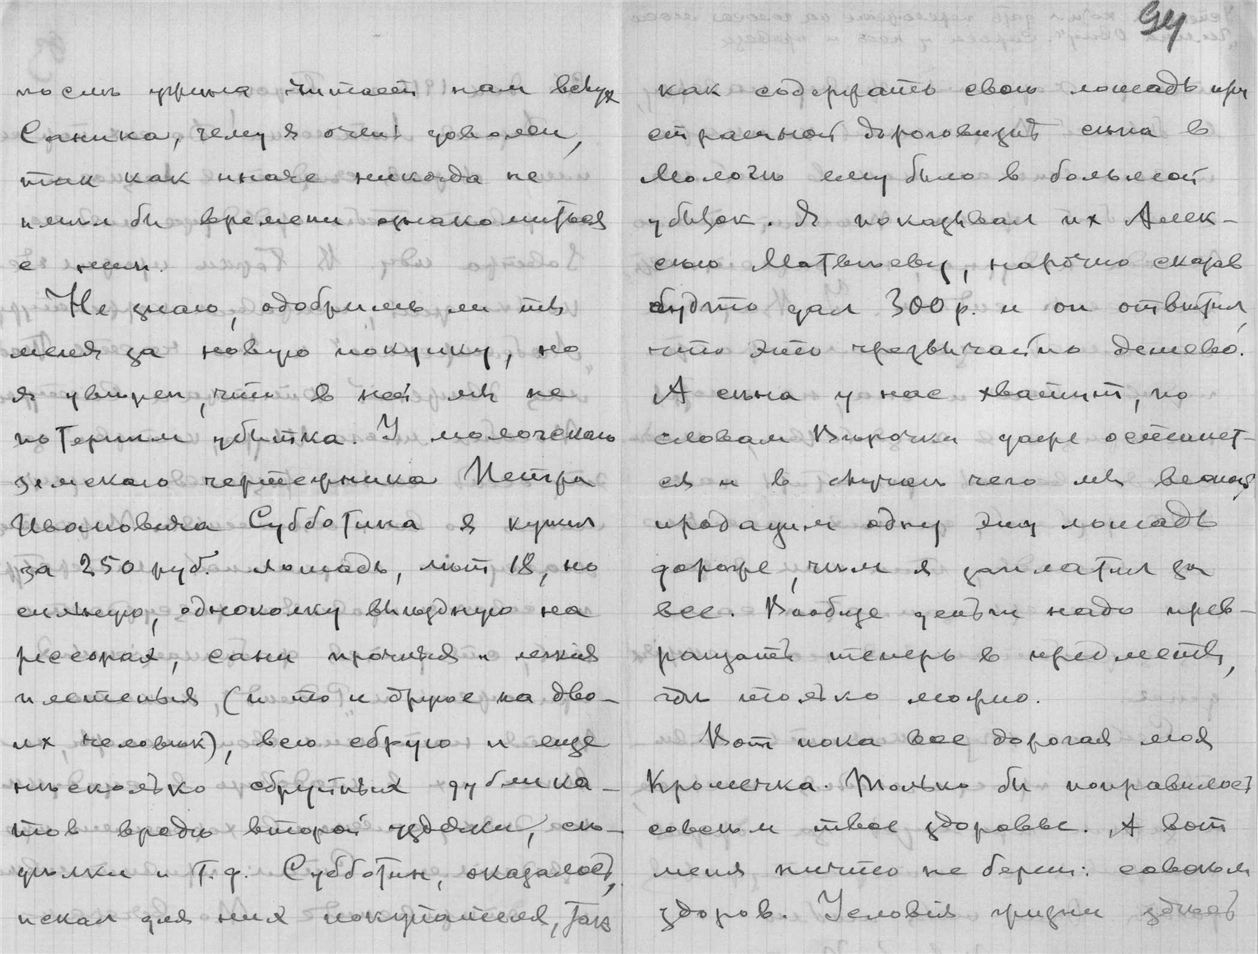 94
послѣ ужина читает нам вслух
Саника, чему я очень доволен,
так как иначе никогда не
имѣл бы времени ознакомиться
с ними.
Не знаю, одобришь ли ты
меня за новую покупку, но
я увѣрен, что в ней мы не
потерпим убытка. У молочского
земского чертежника Петра
Ивановича Субботина я купил
за 250 руб. лошадь, лѣт 18, но
сильную, одноколку выѣздную на
рессорах, сани прочныя и легкія
плетеныя (и то и другое на дво-
их человѣк), всю сбрую и еще
нѣсколько сбруйных дублика-
тов вродѣ второй уздечки, сѣ-
дѣлки и т.д. Субботин, оказалось,
искал для них покупателя, так
как содержать свою лошадь при
страшной дороговизнѣ сѣна в
Молочно ему было в большой
убыток. Я показывал их Алек-
сѣю Матвѣеву, нарочно сказав
будто дал 300 р. и он отвѣтил,
что это чрезвычайно дешево.
А сѣна у нас хватит, по
словам Вирочки даже останет-
ся и в случаѣ чего мы весной
продадим одну эту лошадь
дороже, чѣм я заплатил за
все. Вообще деньги надо прев-
ращать теперь в предметы,
гдѣ только можно.
Вот пока все дорогая моя
Кромечка. Только бы поправилось
совсѣм твое здоровье. А вот
меня ничто не берет: совсѣм
здоров. Условія жизни здѣсь